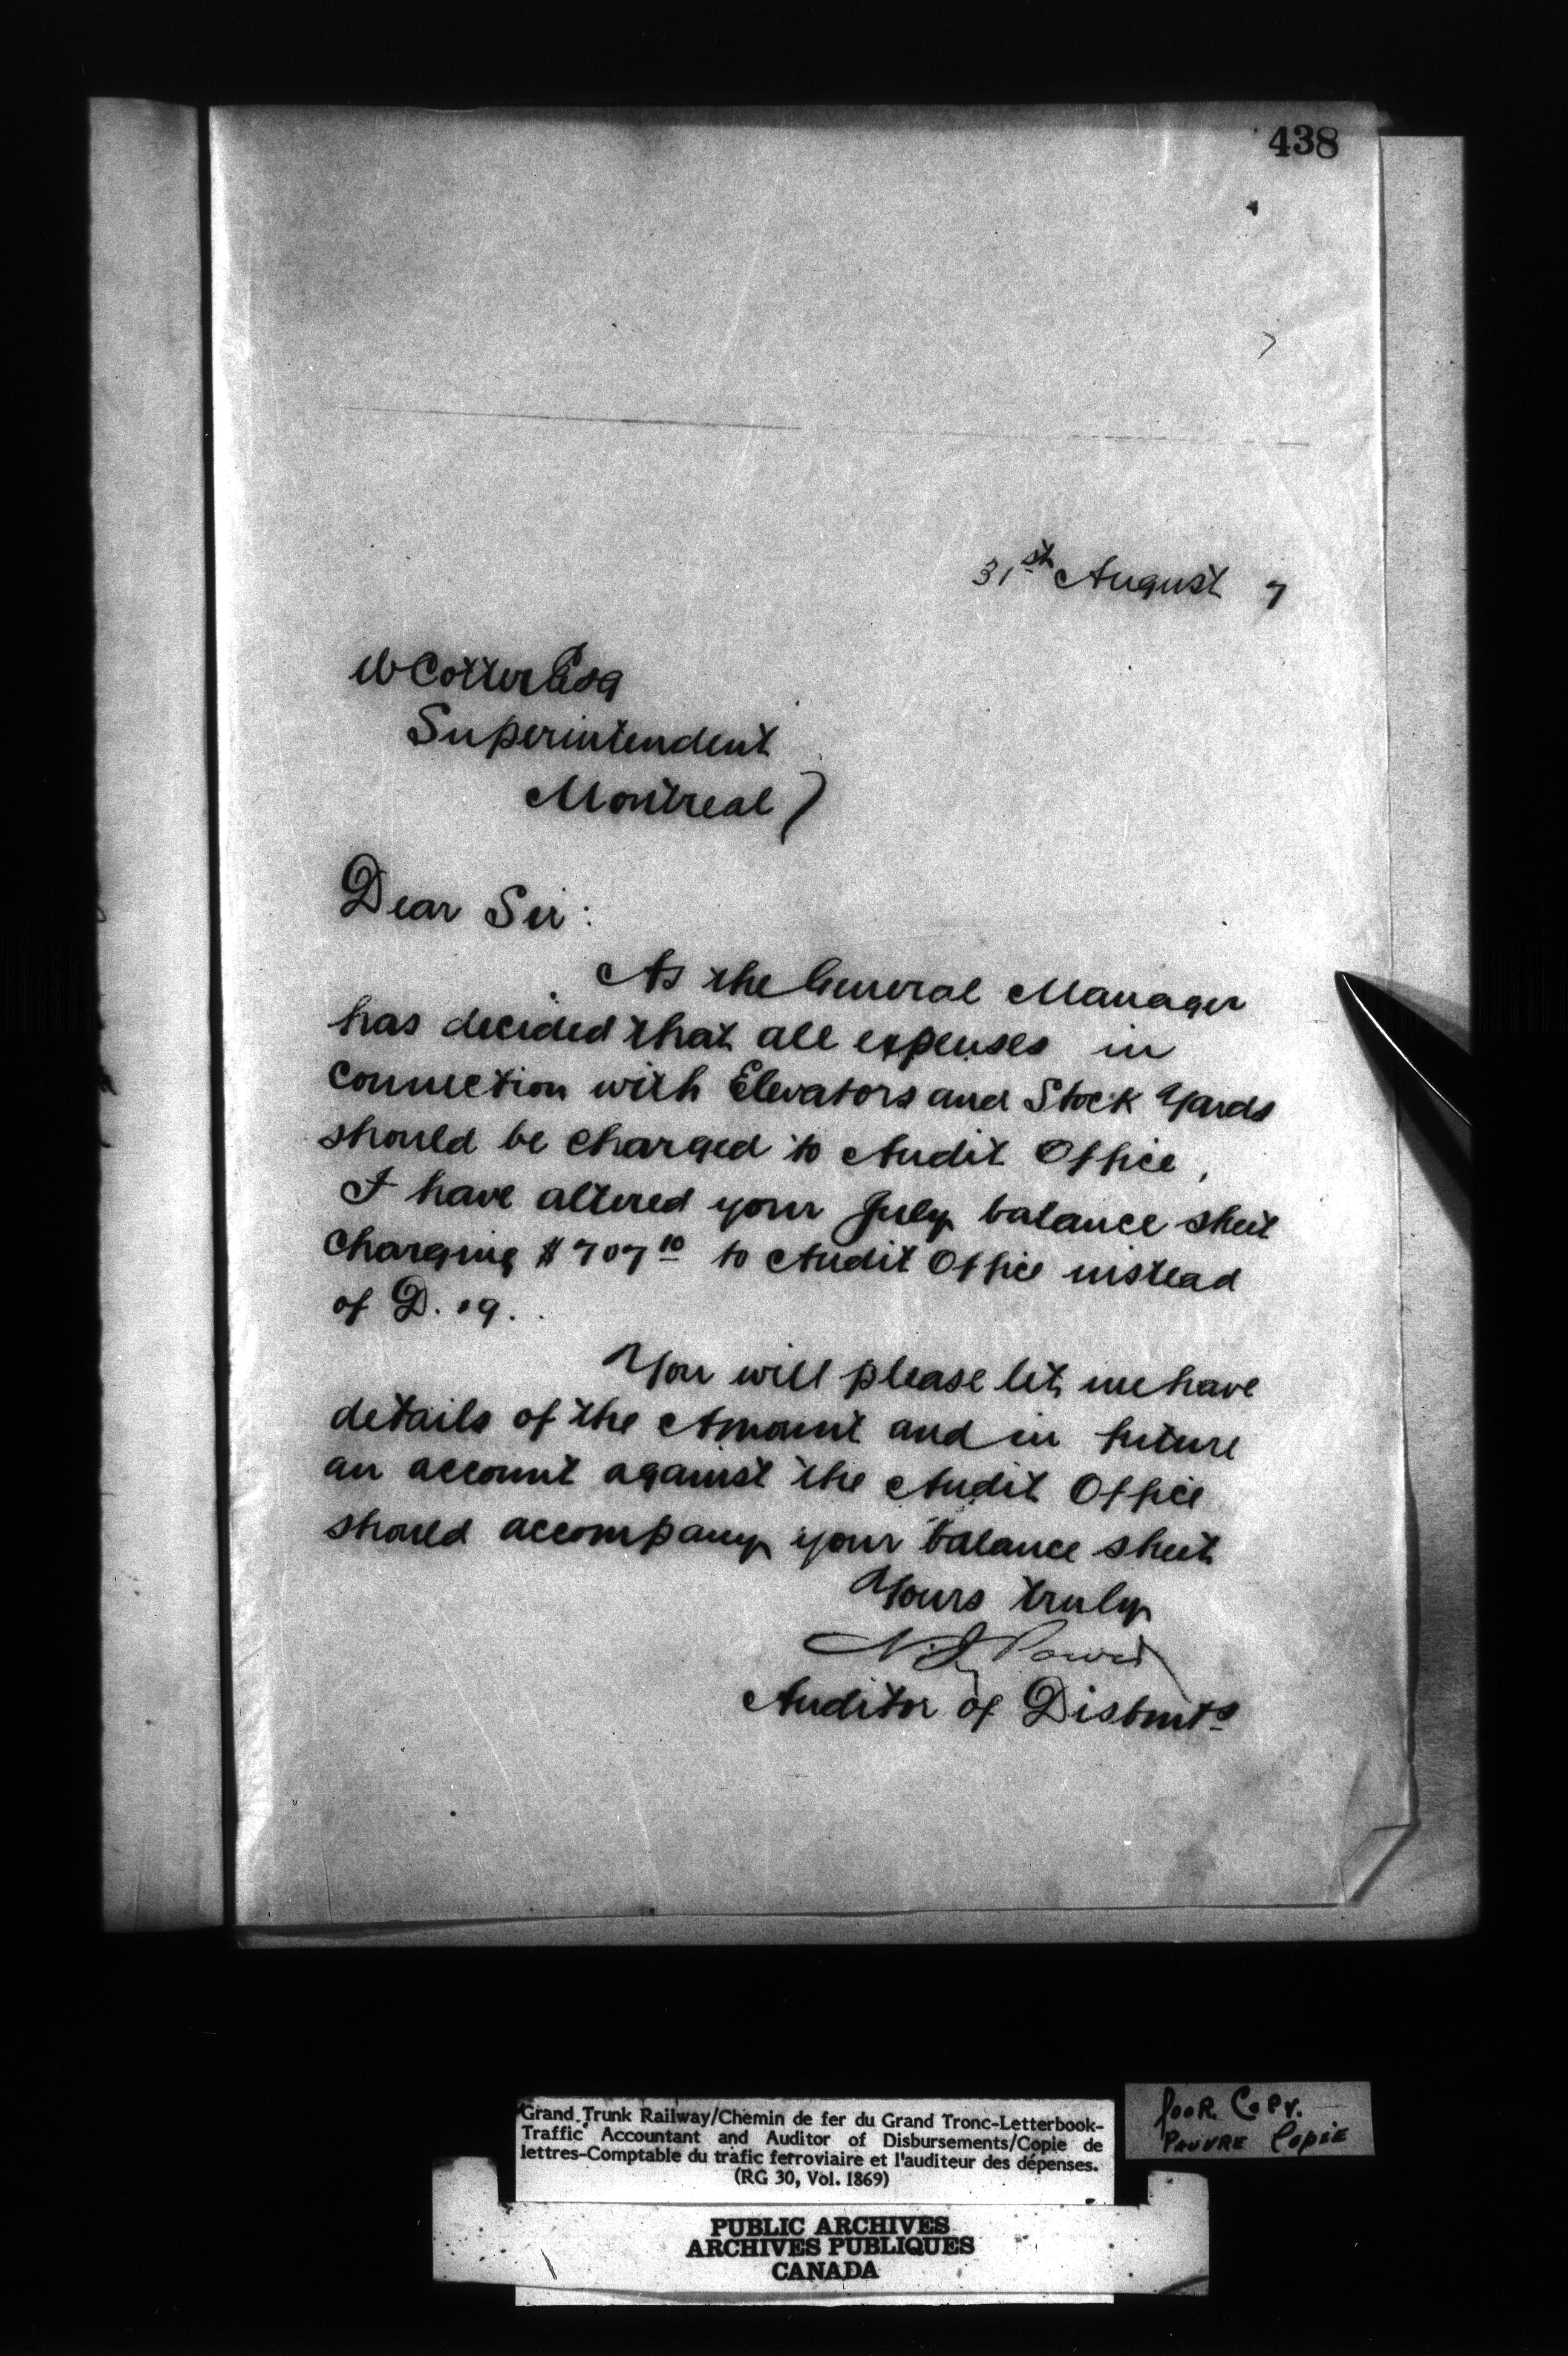 438
31st August 7
W Cotter Esq
Superintendent
Montreal
Dear Sir:
As the General Manager
has decided that all expenses in
connection with Elevators and Stock Yards
should be charged to Audit Office,
I have altered your July balance sheet
charging $707 10 to Audit Office instead
of D. 19.
You will please let me have
details of the Amount and in future
an account against the Audit Office
should accompany your balance sheet
Yours truly
N J Power
Auditor of Disbmts
Grand Trunk Railway/Chemin de fer du Grand Tronc-Letterbook-
Traffic Accountant and Auditor of Disbursements/Copie de
lettres-Comptable du trafic ferroviaire et l'auditeur des dépenses.
(RG 30, Vol. 1869)
Poor Copy.
Pauvre Copie
PUBLIC ARCHIVES
ARCHIVES PUBLIQUES
CANADA